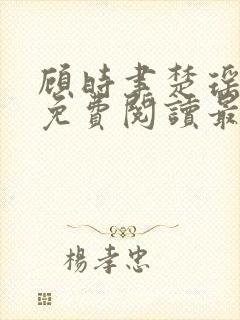 顾時書楚瑶
免費閱讀最
楊孝忠